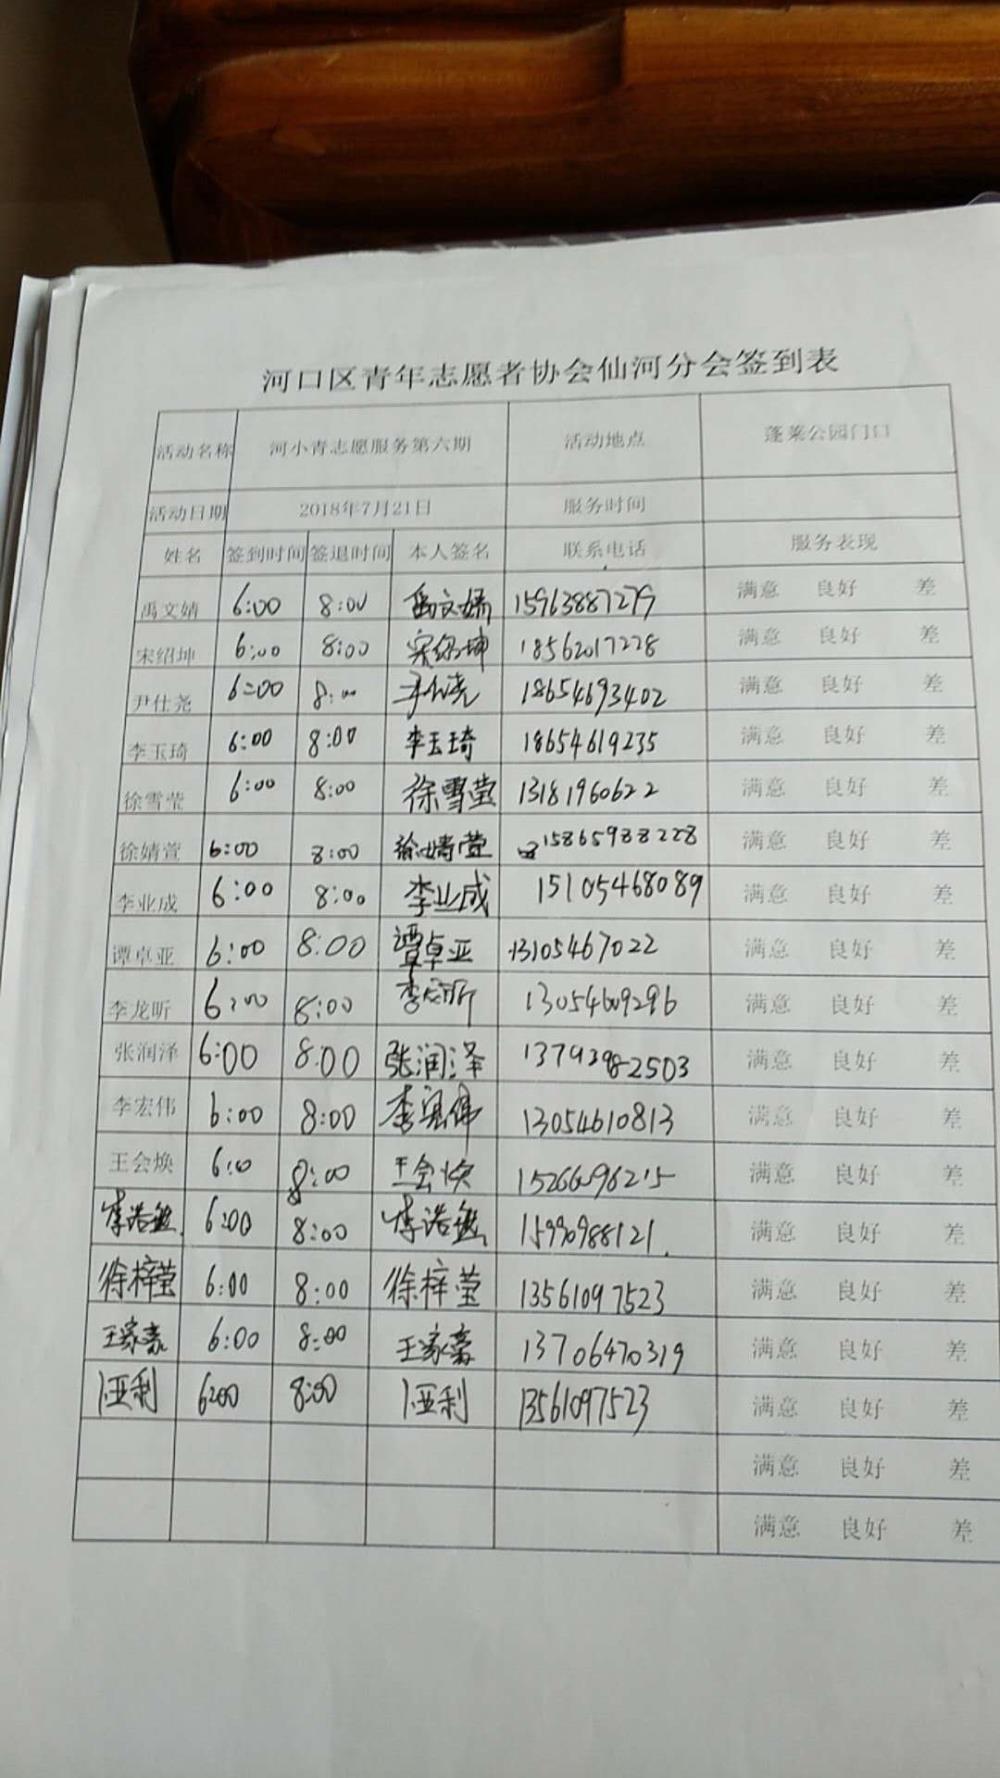 河口区青年志愿者协会仙河分会签到表
活动名称 河小青志愿服务第六期 活动地点 蓬莱公园门口
活动日期 2018年7月21日 服务时间
姓名 签到时间 签退时间 本人签名 联系电话 服务表现
禹文婧 6:00 8:00 禹文婧 15963887279 满意 良好 差
宋绍坤 6:00 8:00 宋绍坤 18562017228 满意 良好 差
尹仕尧 6:00 8:00 尹仕尧 18654693402 满意 良好 差
李玉琦 6:00 8:00 李玉琦 18654619235 满意 良好 差
徐雪莹 6:00 8:00 徐雪莹 13181960622 满意 良好 差
徐婧萱 6:00 8:00 徐婧萱 15865988228 满意 良好 差
李业成 6:00 8:00 李业成 15105468089 满意 良好 差
谭卓亚 6:00 8:00 谭卓亚 13105467022 满意 良好 差
李龙昕 6:00 8:00 李龙昕 13054609296 满意 良好 差
张润泽 6:00 8:00 张润泽 13792982503 满意 良好 差
李宏伟 6:00 8:00 李宏伟 13054610813 满意 良好 差
王会焕 6:00 8:00 王会焕 满意 良好 差
6:00 8:00 满意 良好 差
徐梓莹 6:00 8:00 徐梓莹 13561097523 满意 良好 差
王家豪 6:00 8:00 王家豪 13706470319 满意 良好 差
6:00 8:00 13561097523 满意 良好 差
满意 良好 差
满意 良好 差